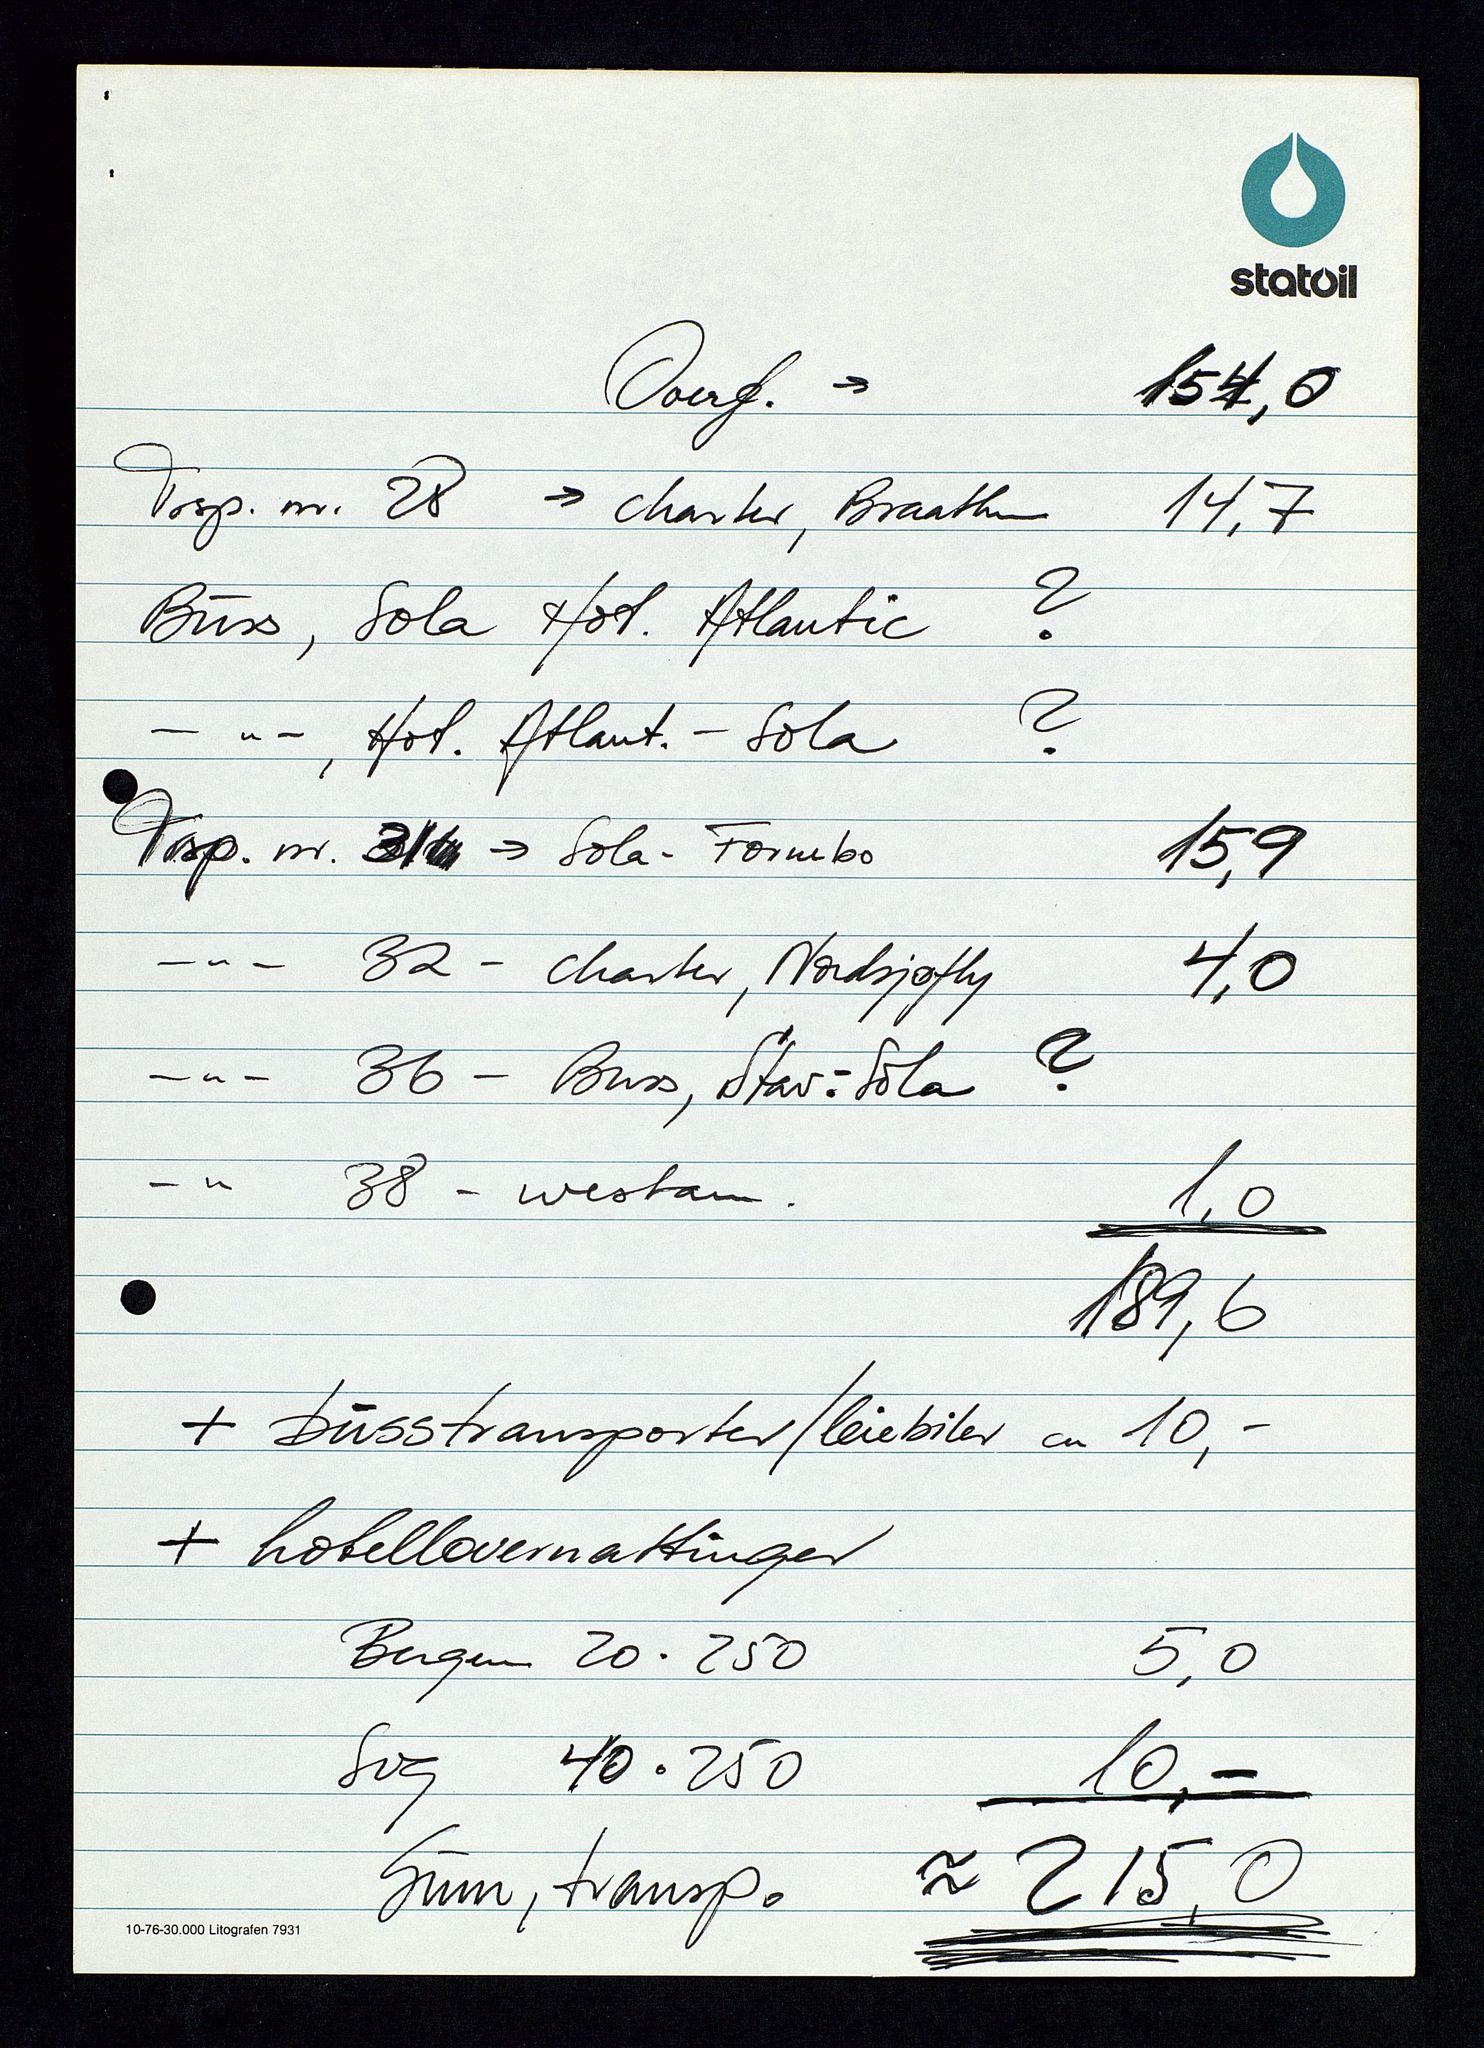 statoil
Overf. → 154,0
Trsp. nr. 28 → charter, Braathen 14,7
Buss, Sola Hot. Atlantic ?
- " - , Hot. Atlant. - Sola ?
Trsp. nr. 31 → Sola - Fornebo 15,9
- " - 32 - charter, Nordsjøfly 4,0
- " - 36 - Buss, Stav. - Sola ?
- " 38 - westam. 1,0
189,6
+ busstransporter/leiebiler ca 10,-
+ hotellovernattinger
Bergen 20 · 250 5,0
Svg 40 · 250 10,-
Sum, transp. ≈ 215,0
10-76-30.000 Litografen 7931